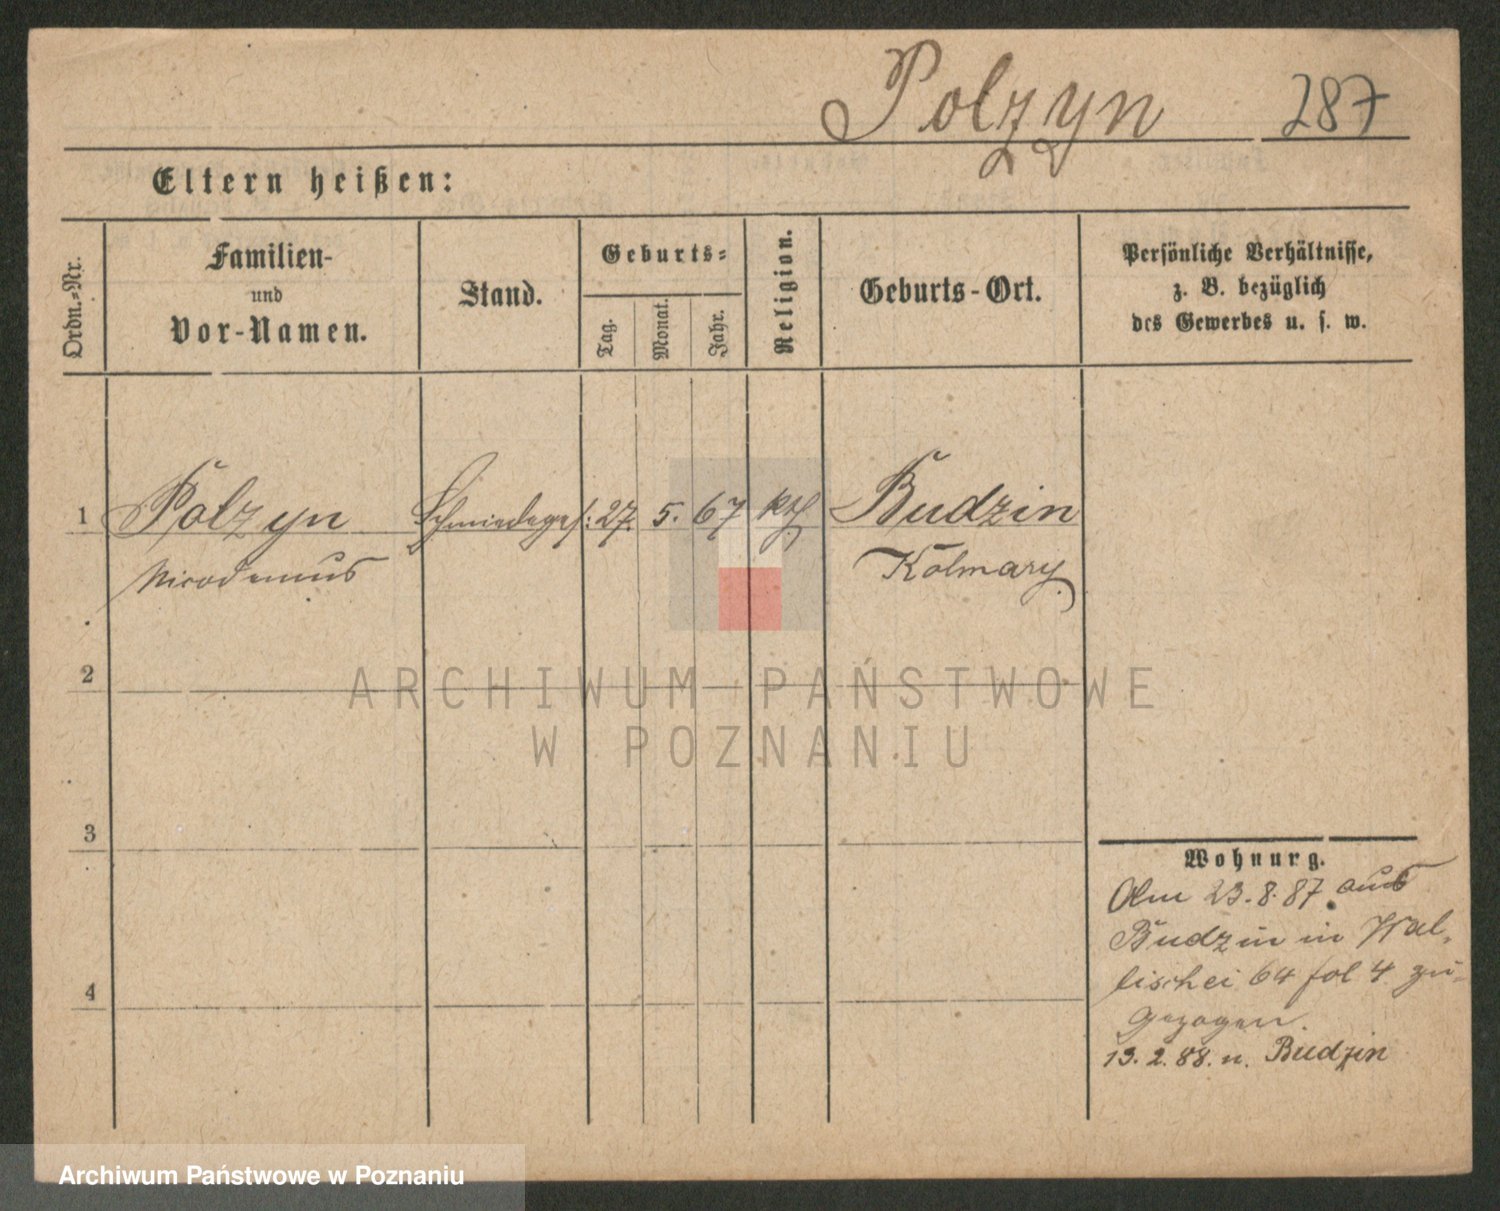 Polzyn 287
Eltern heißen:
Ordn.=Nr.
Familien-
und
Vor-Namen.
Stand.
Geburts=
Tag.
Monat.
Jahr.
Religion.
Geburts-Ort.
Persönliche Verhältnisse,
z. B. bezüglich
des Gewerbes u. s. w.
1 Polzyn Schmiedeges: 27. 5. 67 kth Budzin
Nicodemus Kolmary
2
3
4
Wohnurg.
Am 23.8.87. aus
Budzin in Wal-
lischei 64 fol 4 zu-
gezogen.
13. 2. 88. n. Budzin
ARCHIWUM PAŃSTWOWE
W POZNANIU
Archiwum Państwowe w Poznaniu